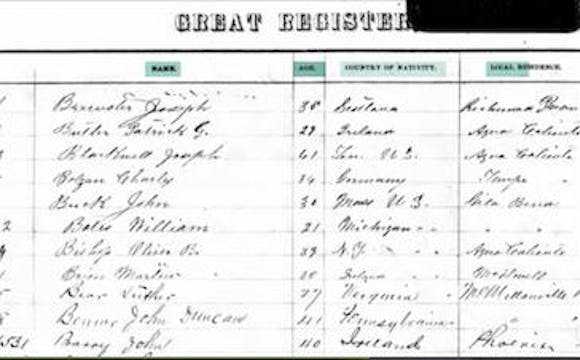 GREAT REGISTER
NAME. AGE. COUNTRY OF NATIVITY. LOCAL RESIDENCE.
Brewster Joseph 38 Scotland
Butler Patrick G. 29 Ireland Agua Caliente
Blackwell Joseph 41 Tenn. U.S. Agua Caliente
Charles 34 Germany Tempe
Buck John 30 Mass U.S. Gila Bend
2 Bates William 21 Michigan " " " "
Bishop Oliver N.Y. " " Agua Caliente
Martin McDowell
Bear Luther 77 Virginia " McMillenville
John Duncan 41 Pennsylvania "
Barry John 40 Ireland Phoenix